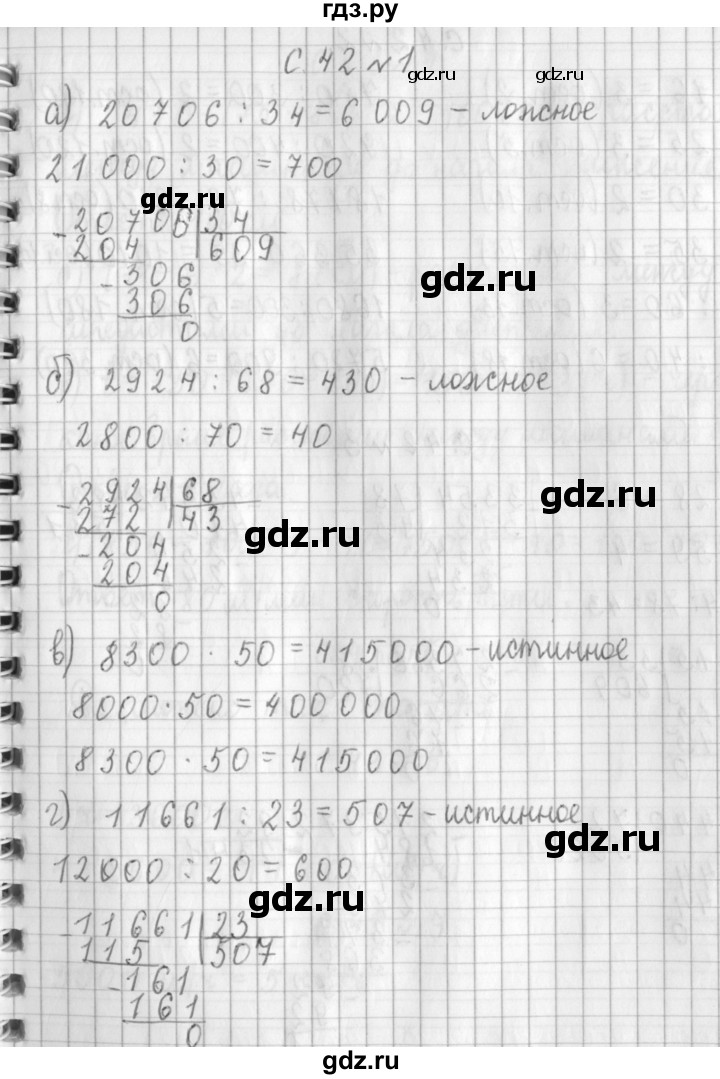 гдз.ру
с. 42 №1
gdz.ru
gdz.ru
а) 20706 : 34 = 6 009 - ложное
21000 : 30 = 700
gdz.ru
- 20706 | 34
204 609
- 306
306
0
gdz.ru
б) 2924 : 68 = 430 - ложное
2800 : 70 = 40
- 2924 | 68
272 43
- 204
204
0
gdz.ru
gdz.ru
в) 8300 · 50 = 415000 - истинное
8000 · 50 = 400 000
8300 · 50 = 415000
г) 11661 : 23 = 507 - истинное
gdz.ru
12000 : 20 = 600
gdz.ru
- 11661 | 23
115 507
- 161
161
0
gdz.ru